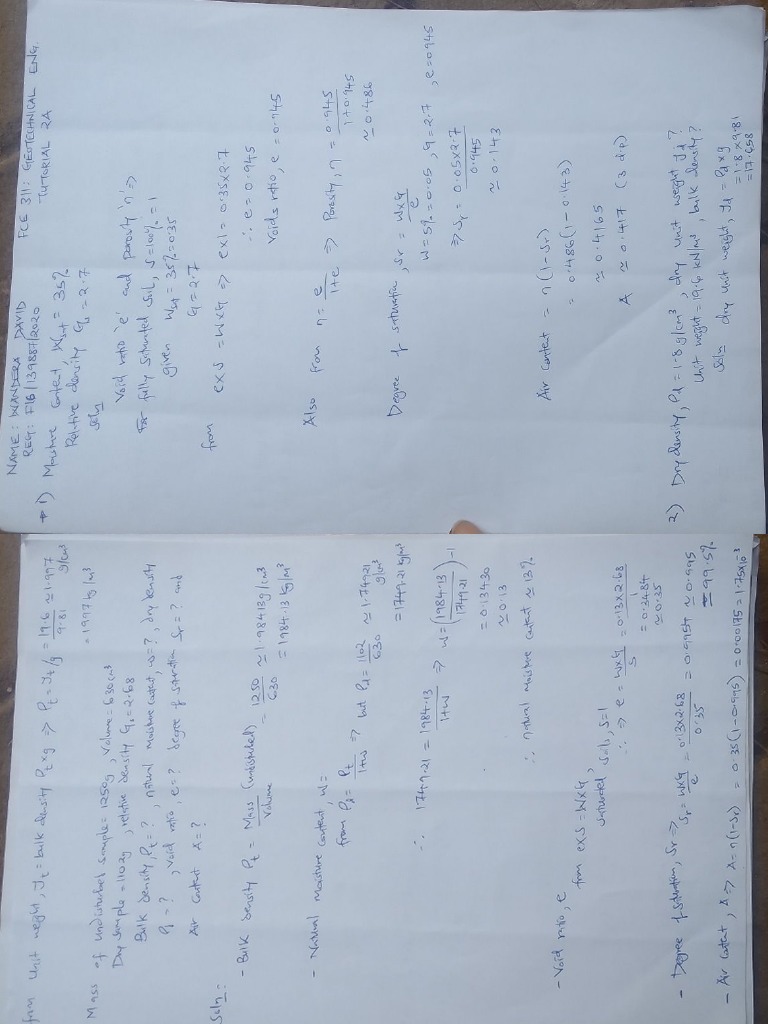 NAME: WANDERA DAVID FCE 311: GEOTECHNICAL ENG.
REG: F16/139887/2020 TUTORIAL 2A
1) Moisture Content, Wsat = 35%
Relative density Gs = 2.7
Soln
Void ratio 'e' and porosity 'n' ⇒
For fully saturated soil, S=100% = 1
given Wsat = 35% = 0.35
G = 2.7
from exS = WxG ⇒ ex1 = 0.35x2.7
∴ e = 0.945
Voids ratio, e = 0.945
Also from n = e/(1+e) ⇒ Porosity, n = 0.945/(1+0.945)
≃ 0.486
Degree of saturation, Sr = WxG/e
W = 5% = 0.05, G = 2.7, e = 0.945
⇒ Sr = 0.05x2.7/0.945
≃ 0.143
Air Content = n(1-Sr)
= 0.486(1-0.143)
≃ 0.4165
A ≃ 0.417 (3 d.p)
2) Dry density, Pd = 1.8 g/cm³, dry unit weight γd?
Unit weight = 19.6 kN/m³, bulk density?
Soln dry unit weight, γd = Pd x g
= 1.8 x 9.81
= 17.658
from Unit weight, γt = bulk density Pt x g ⇒ Pt = γt/g = 19.6/9.81 ≃ 1.997 g/cm³
= 1997 kg/m³
Mass of undisturbed sample = 1250g, Volume = 630cm³
Dry sample = 1102g, relative density Gs = 2.68
Bulk density, Pt = ?, natural moisture content, w = ?, dry density
Pd = ?, void ratio, e = ? degree of saturation Sr = ? and
Air content A = ?
Soln:
- Bulk density Pt = Mass (undisturbed)/Volume = 1250/630 ≃ 1.98413g/cm³
= 1984.13 kg/m³
- Natural moisture content, w =
from Pd = Pt/(1+w) ⇒ but Pd = 1102/630 ≃ 1.74921 g/cm³
= 1749.21 kg/m³
∴ 1749.21 = 1984.13/(1+w) ⇒ w = (1984.13/1749.21) - 1
= 0.13430
≃ 0.13
∴ natural moisture content ≃ 13%
- Void ratio, e
from exS = WxG,
saturated soil, S=1
∴ ⇒ e = WxG/S = 0.13x2.68/1
= 0.3484
≃ 0.35
- Degree of saturation, Sr ⇒
Sr = WxG/e = 0.13x2.68/0.35 = 0.9954 ≃ 0.995
≃ 99.5%
- Air content, A ⇒ A = n(1-Sr) = 0.35(1-0.995) = 0.00175 = 1.75x10⁻³